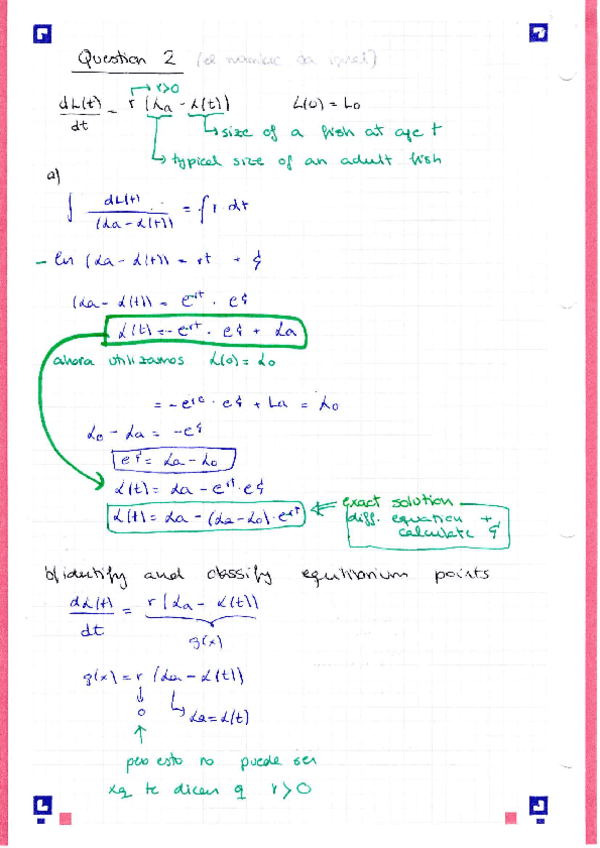 Question 2 (el nombre da igual)
r>0
dL(t)/dt = r (La - L(t))    L(0) = Lo
size of a fish at age t
typical size of an adult fish
a)
∫ dL(t)/(La - L(t)) = ∫ r · dt
- ln (La - L(t)) = rt + ɕ
(La - L(t)) = e^rt · eɕ
L(t) = - e^rt · eɕ + La
ahora utilizamos L(0) = Lo
= - e^r0 · eɕ + La = Lo
Lo - La = -eɕ
eɕ = La - Lo
L(t) = La - e^rt · eɕ
L(t) = La - (La - Lo) · e^rt
exact solution
diff. equation +
calculate ɕ
b) identify and classify equilibrium points
dL(t)/dt = r (La - L(t))
g(x)
g(x) = r (La - L(t))
0
La = L(t)
pero esto no puede ser
xq te dicen q r>0